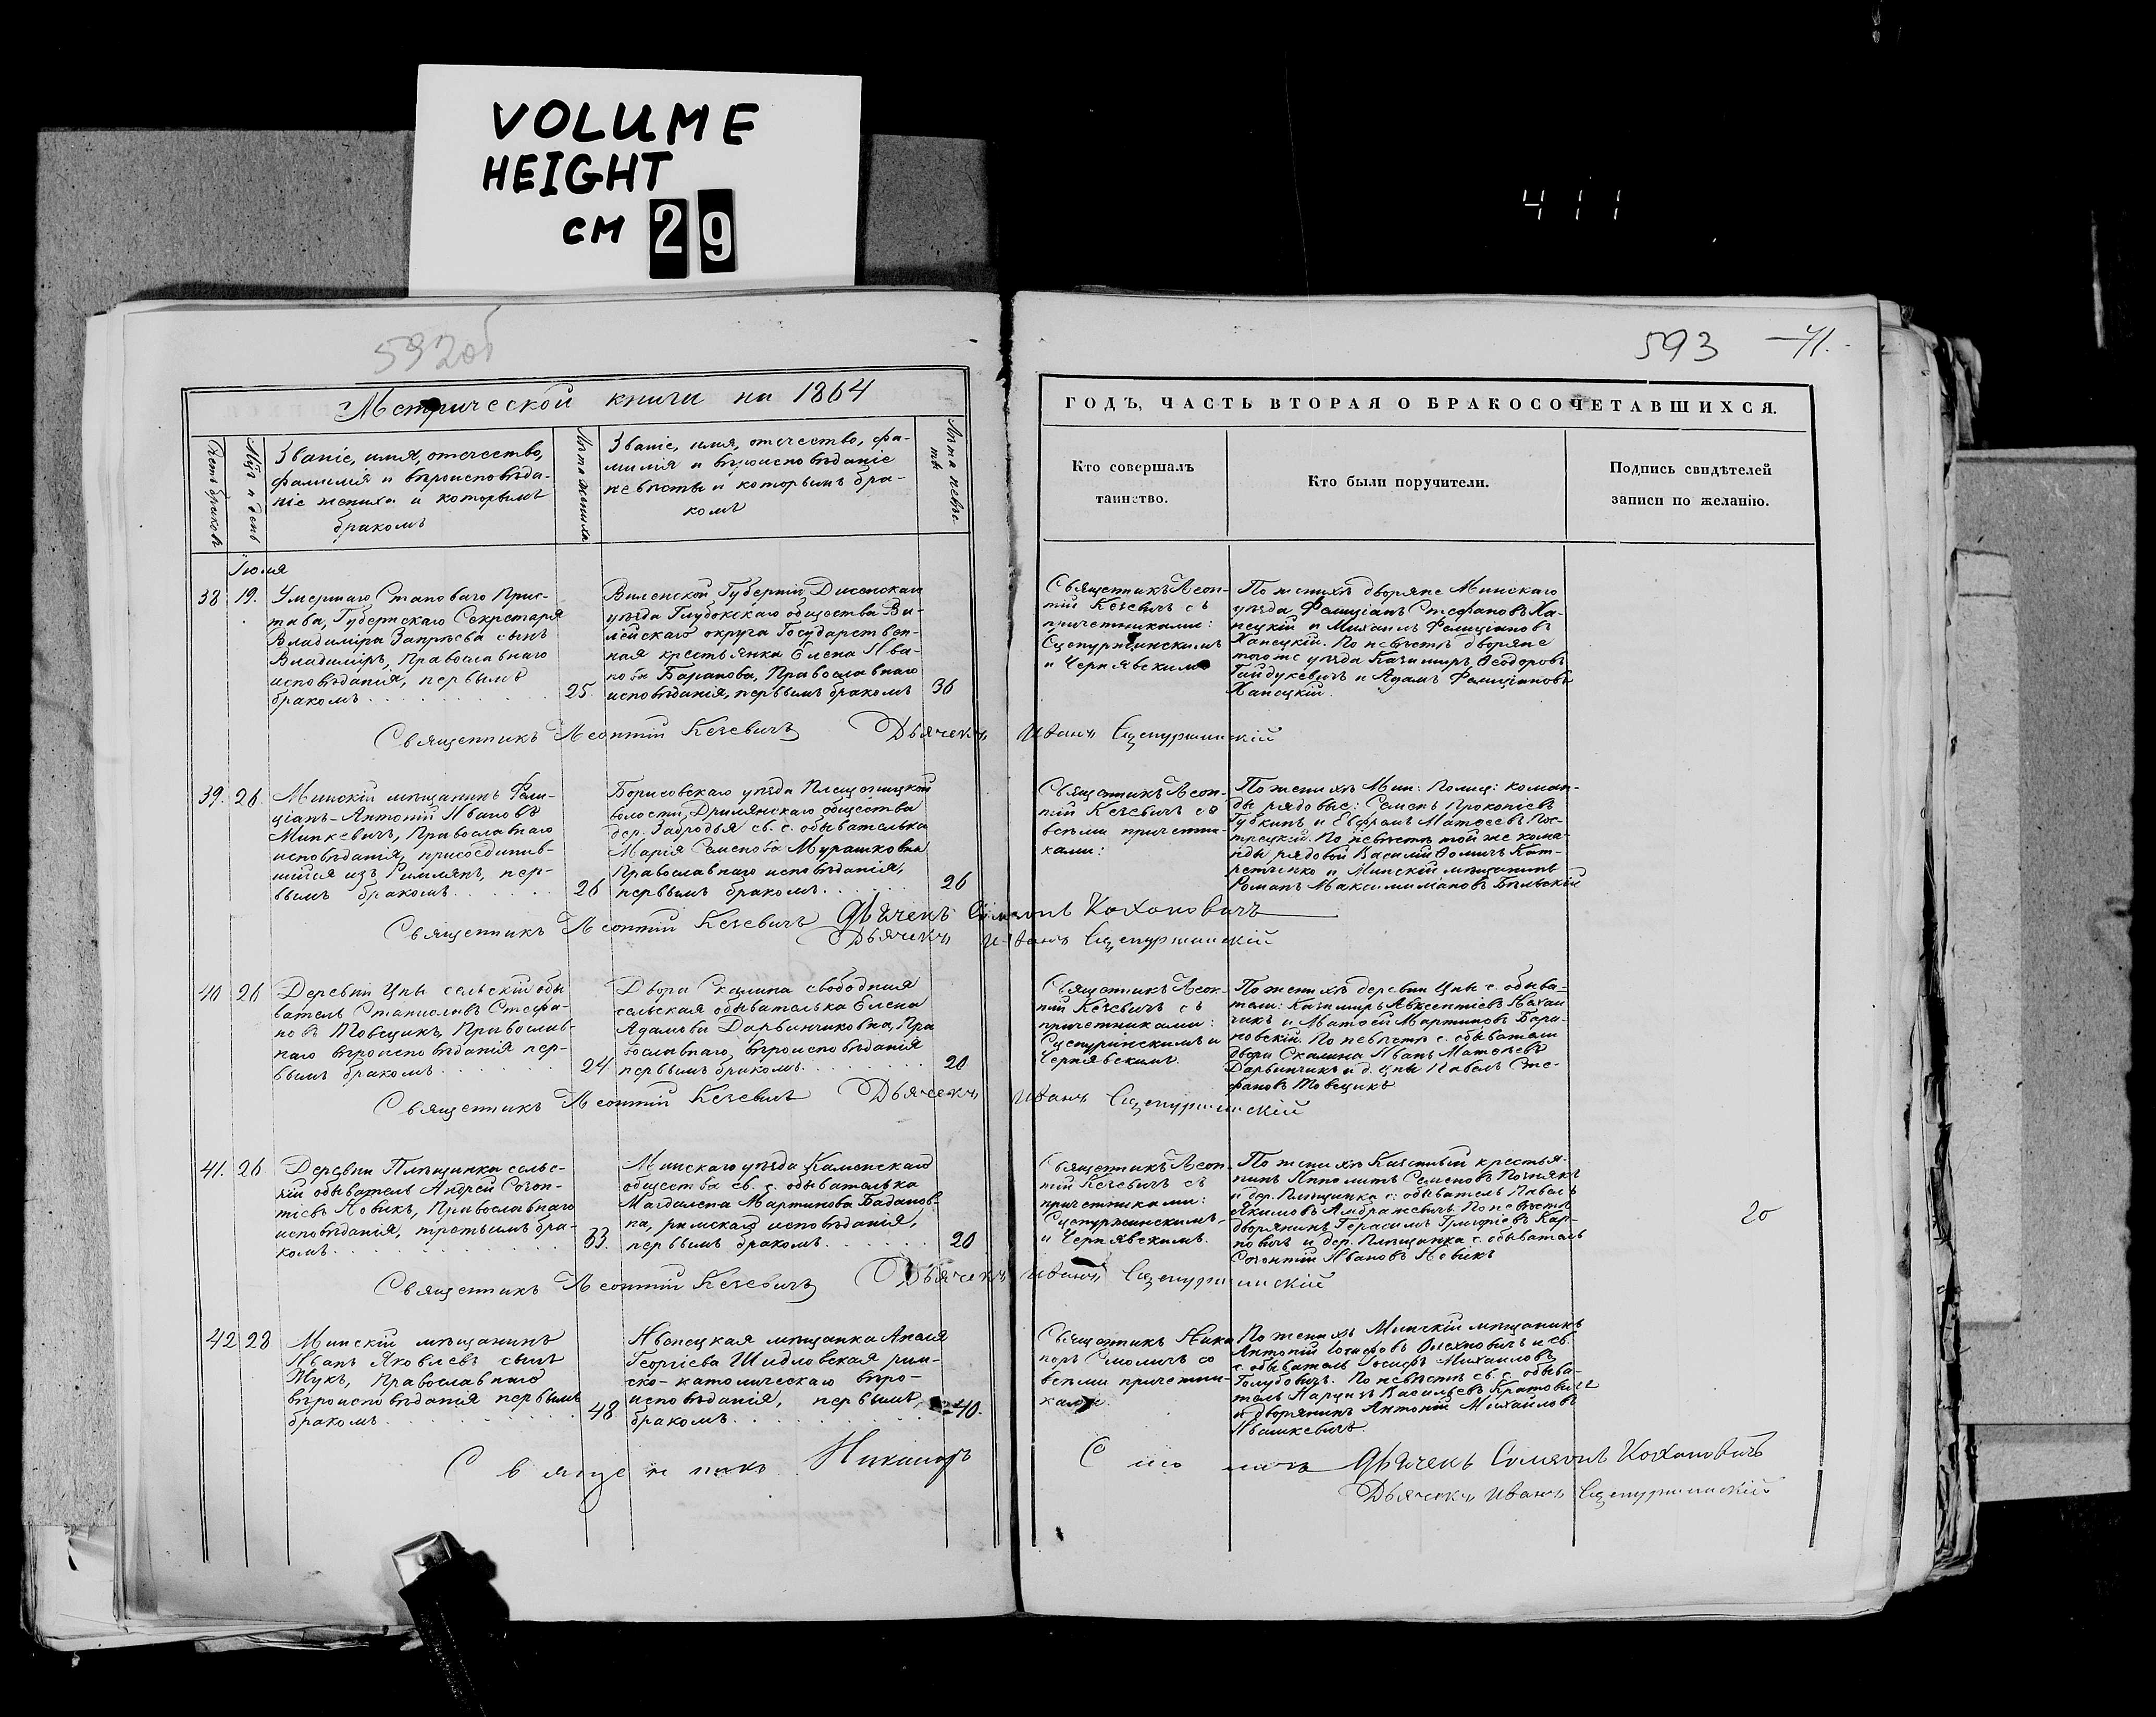 VOLUME
HEIGHT
CM 29
411
592об
593
41.
Метрической книги на 1864
ГОДЪ, ЧАСТЬ ВТОРАЯ О БРАКОСОЧЕТАВШИХСЯ.
Счетъ браковъ
Мѣс. и день
Званіе, имя, отчество,
фамилія и вѣроисповѣда-
ніе жениха и которымъ
бракомъ
Лѣта жениха
Званіе, имя, отчество, фа-
милія и вѣроисповѣданіе
невѣсты и которымъ бра-
комъ
Лѣта невѣс-
ты
Кто совершалъ
таинство.
Кто были поручители.
Подпись свидѣтелей
записи по желанію.
Іюля
38
19.
Умершаго Становаго Прис-
тава, Губернскаго Секретаря
Владиміра сынъ
Владиміръ, Православнаго
исповѣданія, первымъ
бракомъ
25.
Виленской Губерніи Дисенскаго
уѣзда Глубокскаго общества Ви-
лейскаго округа Государствен-
ная крестьянка Елена Ива-
нова Баранова, Православнаго
исповѣданія, первымъ бракомъ
36
Священникъ Леон-
тій Кезевичъ съ
причетниками:
Сцепуржинскимъ
и Чернявскимъ
По женихѣ дворяне Минскаго
уѣзда Фелиціанъ Стефановъ Ха-
нецкій и Михаилъ Фелиціановъ
Ханецкій. По невѣстѣ дворяне
того же уѣзда Казимиръ Ѳеодоровъ
Гайдукевичъ и Адамъ Фелиціановъ
Ханецкій.
Священникъ Леонтій Кезевичъ Дьячекъ Иванъ Сцепуржинскій
39.
26
Минскій мѣщанинъ Фели-
ціанъ-Антоній Ивановъ
Минкевичъ, Православнаго
исповѣданія, присоединив-
шійся изъ Римлянъ, пер-
вымъ бракомъ
26
Борисовскаго уѣзда Плещеницкой
волости, общества
дер. Забродья св. с. обывателька
Марія Семенова Мурашковна
Православнаго исповѣданія,
первымъ бракомъ
26
Священникъ Леон-
тій Кезевичъ со
всѣми причетни-
ками:
По женихѣ Мин: Полиц: коман-
ды рядовые: Семенъ Прокопіевъ
Губкинъ и Матѳеевъ
По невѣстѣ той же кома-
нды рядовой Василій Ѳомичъ
и Минскій мѣщанинъ
Романъ Максимиліановъ Бѣльскій
Священникъ Леонтій Кезевичъ Дьячекъ Симеонъ Кохановичъ
Дьячекъ Иванъ Сцепуржинскій
40
26
Деревни Цны сельскій обы
ватель Станиславъ Стефа-
новъ Товщикъ, Православ-
наго вѣроисповѣданія пер-
вымъ бракомъ
24
Двора Скалина свободная
сельская обывателька Елена
Адамова Дарвинчиковна, Пра
вославнаго вѣроисповѣданія
первымъ бракомъ
20
Священникъ Леон-
тій Кезевичъ съ
причетниками:
Сцепуржинскимъ и
Чернявскимъ.
По женихѣ деревни Цны с. обыва-
тели: Казимиръ Авксентіевъ
и Матѳей Мартиновъ Бара-
новскій. По невѣстѣ с. обыватели
двора Скалина Иванъ Матѳеевъ
Дарвинчикъ и д. Цны Павелъ Сте-
фановъ Товщикъ
Священникъ Леонтій Кезевичъ Дьячекъ Иванъ Сцепуржинскій
41.
26
Деревни Плѣщинки сельс-
кій обыватель Андрей Созон-
тіевъ Новикъ, Православнаго
исповѣданія, третьимъ бра-
комъ
33.
Минскаго уѣзда Каменскаго
общества св. с. обывателька
Магдалена Мартинова Баданов-
на, римскаго исповѣданія,
первымъ бракомъ
20
Священникъ Леон-
тій Кезевичъ съ
причетниками:
Сцепуржинскимъ,
и Чернявскимъ.
По женихѣ Казенный крестья-
нинъ Ипполитъ Семеновъ Познякъ
и дер. Плѣщинка с: обыватель Павелъ
Якимовъ Амбражевичъ. По невѣстѣ
дворянинъ Герасимъ Григоріевъ Кар-
повичъ и дер. Плѣщинка с. обыватель
Созонтій Ивановъ Новикъ
20
Священникъ Леонтій Кезевичъ Дьячекъ Иванъ Сцепуржинскій
42
28
Минскій мѣщанинъ
Иванъ Яковлевъ сынъ
Жукъ, Православнаго
вѣроисповѣданія первымъ
бракомъ
48
Ивенецкая мѣщанка Анеля
Георгіева Шидловская рим-
ско-католическаго вѣро-
исповѣданія, первымъ
бракомъ
40.
Священникъ Ника
норъ Смоличъ со
всѣми причетни-
ками.
По женихѣ Минскій мѣщанинъ
Антоній Іосифовъ Олехновичъ и св.
с. обыватель Іосифъ Михаиловъ
Голубовичъ. По невѣстѣ св. с. обыва-
тель Нарцизъ Васильевъ Кратовичъ
и дворянинъ Антоній Михайловъ
Ивашкевичъ.
Священникъ Никаноръ Смоличъ Дьячекъ Симеонъ Кохановичъ
Дьячекъ Иванъ Сцепуржинскій